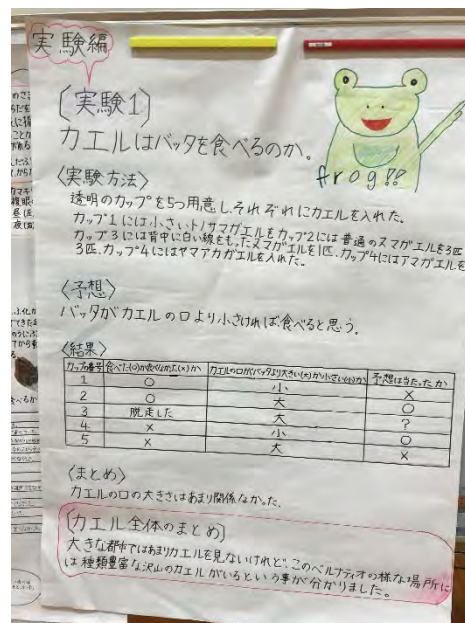 実験編
[実験1]
カエルはバッタを食べるのか。
frog!!
〈実験方法〉
透明のカップを5つ用意し、それぞれにカエルを入れた。
カップ1には小さいトノサマガエルをカップ2には普通のヌマガエルを3匹
カップ3には背中に白い線をもったヌマガエルを1匹、カップ4にはアマガエルを
3匹、カップ4にはヤマアカガエルを入れた。
〈予想〉
バッタがカエルの口より小さければ、食べると思う。
〈結果〉
カップ番号 食べた(○)か食べなかた(×)か カエルの口がバッタより大きい(大)か小さい(小)か 予想は当たったか
1 ○ 小 ×
2 ○ 大 ○
3 脱走した 大 ?
4 × 小 ○
5 × 大 ×
〈まとめ〉
カエルの口の大きさはあまり関係なかった。
[カエル全体のまとめ]
大きな都市ではあまりカエルを見ないけれど、このベルナティオの様な場所に
は種類豊富な沢山のカエルがいるという事が分かりました。